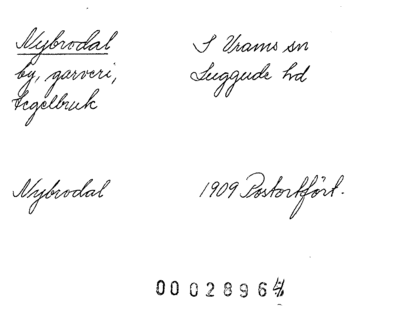 Nybrodal S Vrams sn
by, garveri, Luggude hd
tegelbruk
Nybrodal 1909 Postortför.
0002896